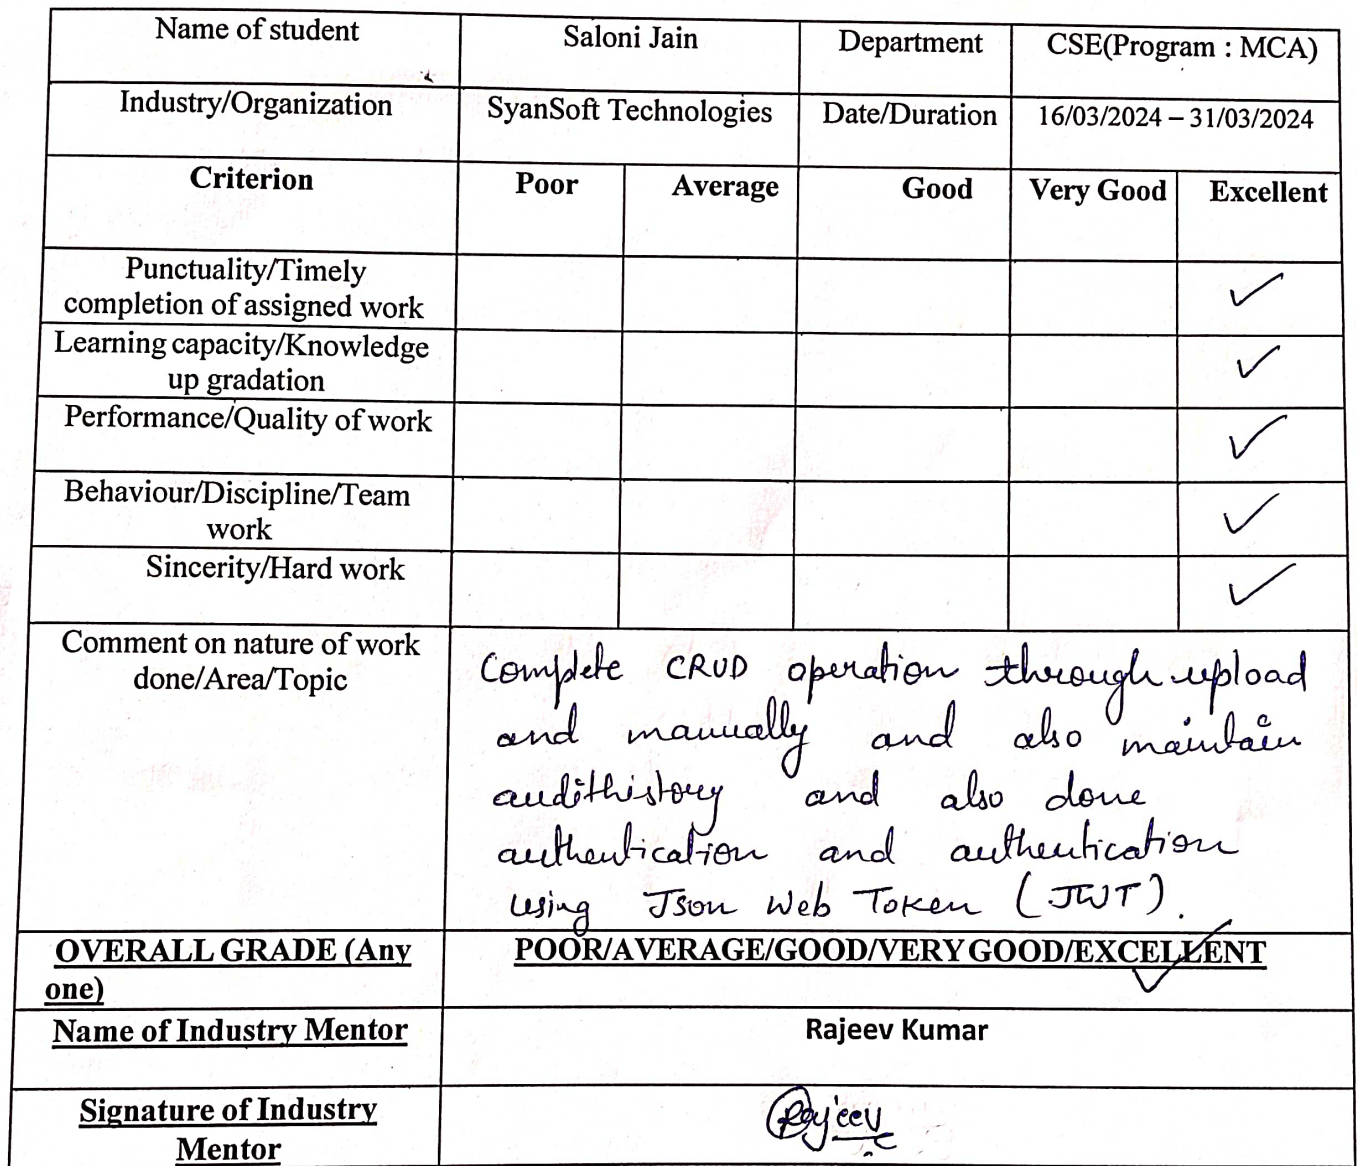 Name of student Saloni Jain Department CSE(Program : MCA)
Industry/Organization SyanSoft Technologies Date/Duration 16/03/2024 – 31/03/2024
Criterion Poor Average Good Very Good Excellent
Punctuality/Timely
completion of assigned work ✓
Learning capacity/Knowledge
up gradation ✓
Performance/Quality of work ✓
Behaviour/Discipline/Team
work ✓
Sincerity/Hard work ✓
Comment on nature of work
done/Area/Topic
Complete CRUD operation through upload
and manually and also maintain
audithistory and also done
authentication and authentication
using Json Web Token (JWT).
OVERALL GRADE (Any
one)
POOR/AVERAGE/GOOD/VERY GOOD/EXCELLENT ✓
Name of Industry Mentor Rajeev Kumar
Signature of Industry
Mentor
Rajeev